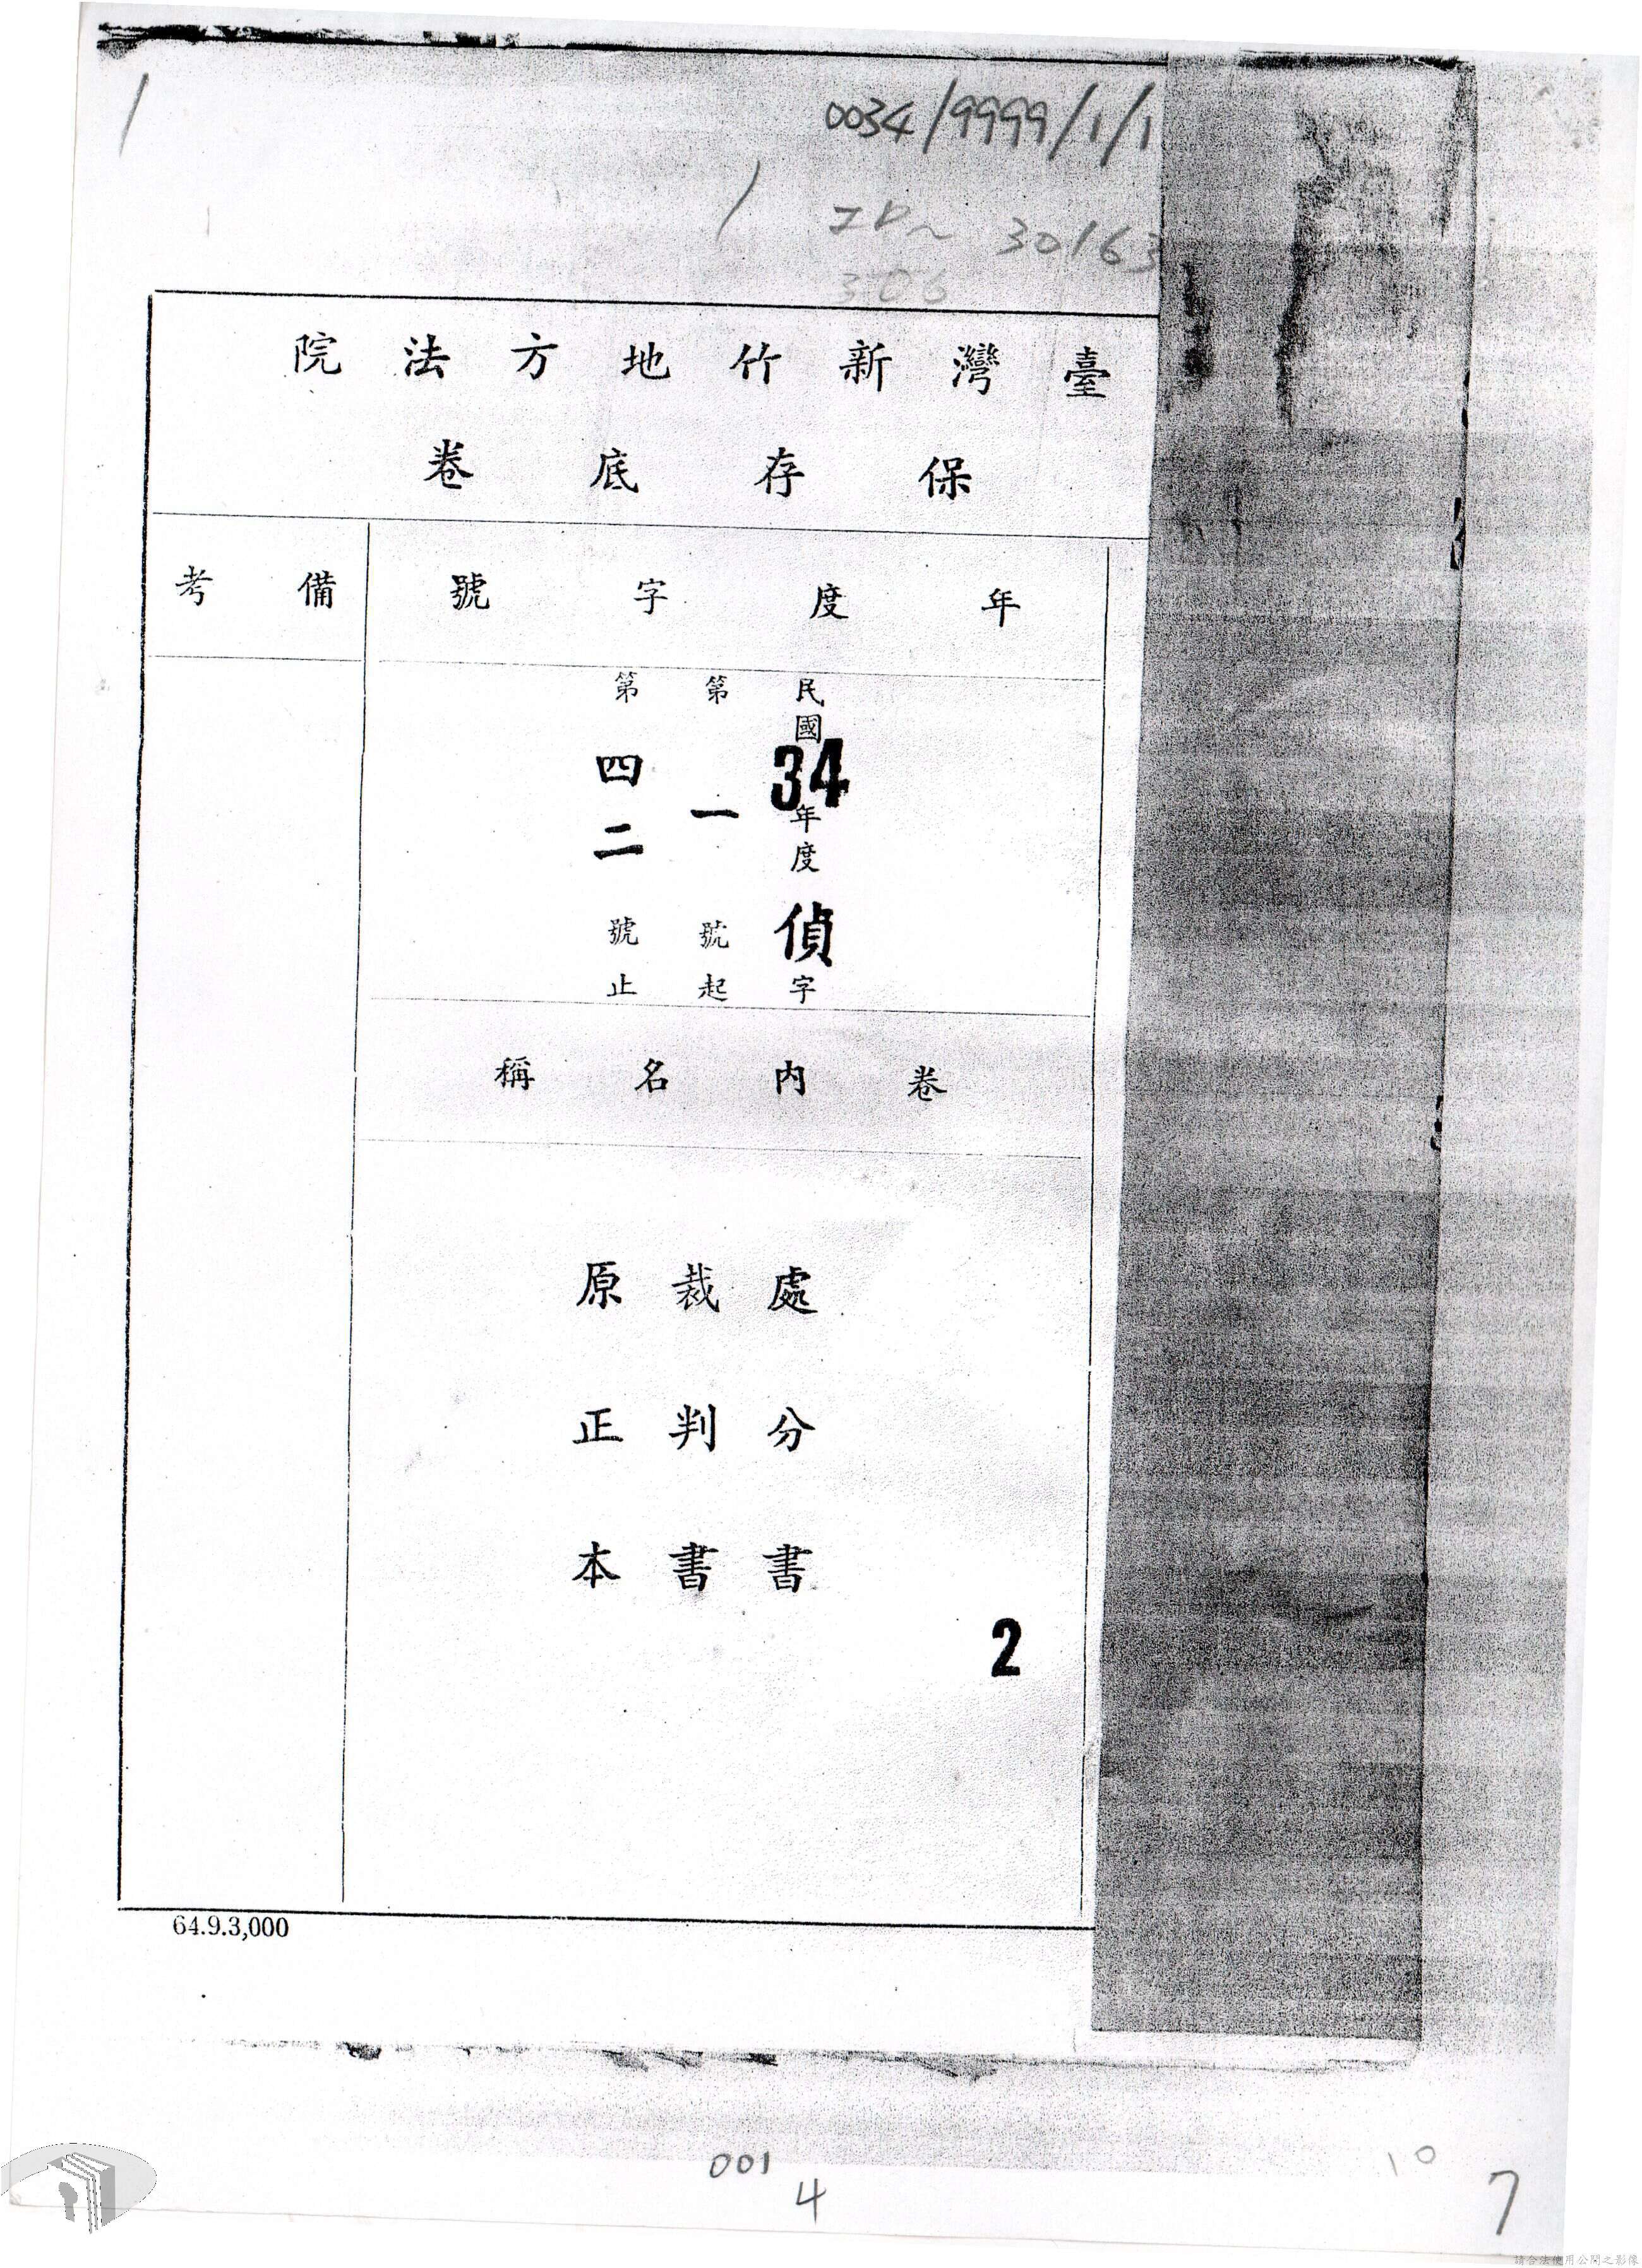 0034/9999/1/1
ID~ 30163
306
臺灣新竹地方法院
保存底卷
年度字號
備考
民國34年度偵字
第一號起
第四二號止
卷內名稱
處分書
裁判書
原正本
2
64.9.3,000
001
4
10
7
請合法使用公開之影像